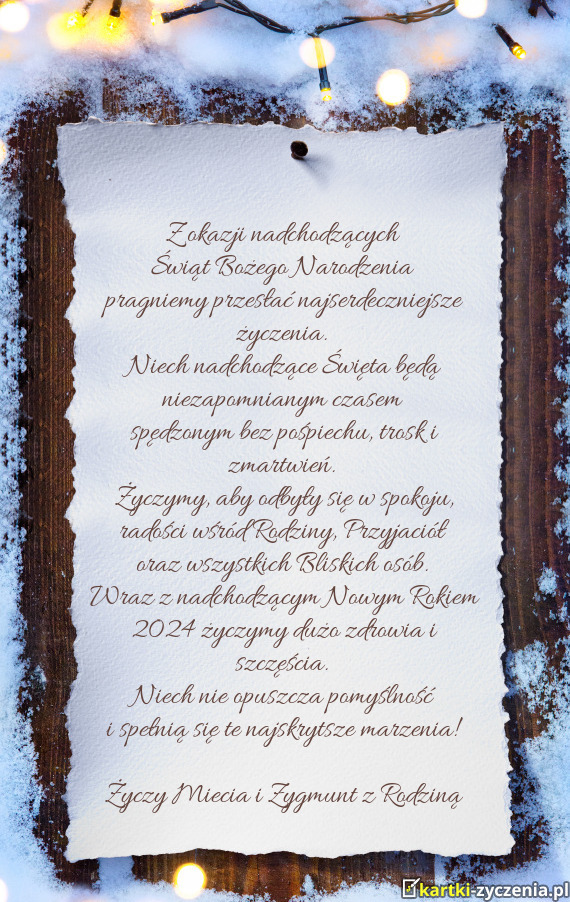 Z okazji nadchodzących
Świąt Bożego Narodzenia
pragniemy przesłać najserdeczniejsze
życzenia.
Niech nadchodzące Święta będą
niezapomnianym czasem
spędzonym bez pośpiechu, trosk i
zmartwień.
Życzymy, aby odbyły się w spokoju,
radości wśród Rodziny, Przyjaciół
oraz wszystkich Bliskich osób.
Wraz z nadchodzącym Nowym Rokiem
2024 życzymy dużo zdrowia i
szczęścia.
Niech nie opuszcza pomyślność
i spełnią się te najskrytsze marzenia!
Życzy Miecia i Zygmunt z Rodziną
kartki-zyczenia.pl